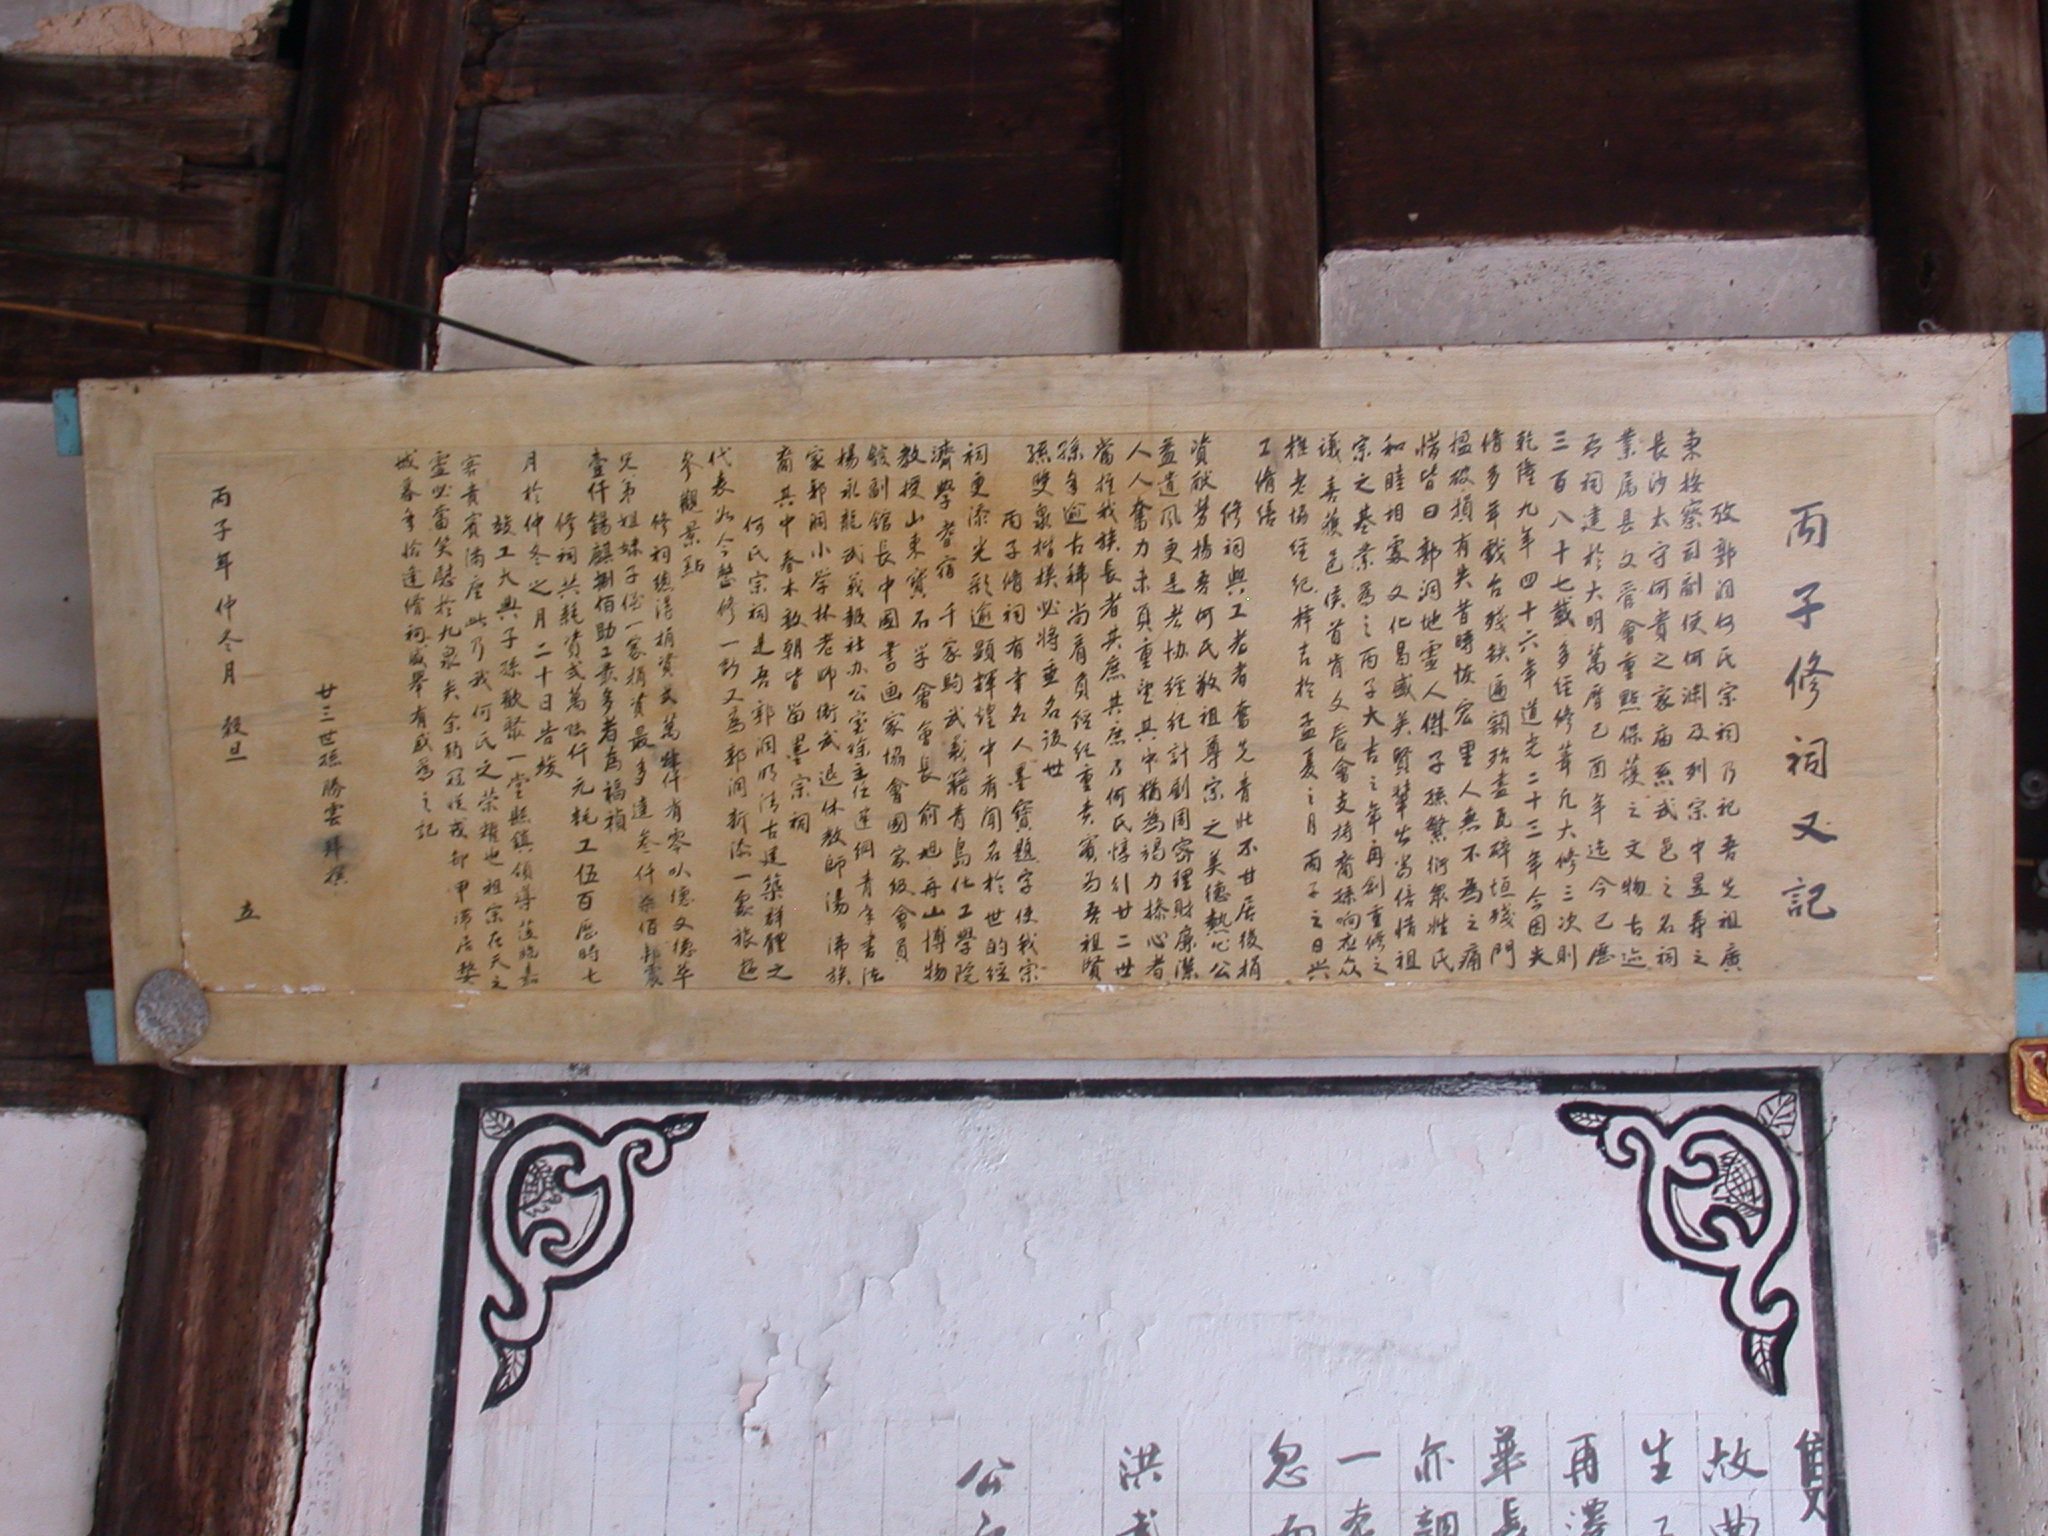 丙子修祠又記
攷郭洞何氏宗祠乃祀吾先祖廣
東按察司副使何淵及列宗中昱壽之
長沙太守何貴之家廟系武邑之名祠
業屬县文管會重點保護之文物古迹
吾祠建於大明萬曆己酉年迄今已歷
三百八十七載多經修葺凡大修三次則
乾隆九年四十六年道光二十三年今因失
脩多年戲台殘缺遍額殆盡瓦碎垣殘門
楹破損有失昔時恢宏里人無不為之痛
惜皆曰郭洞地靈人傑子孫繁衍眾性民
和睦相處文化昌盛美賢輩出當倍惜祖
宗之基業為之丙子大吉之年再創重修之
議喜獲邑侯首肯文管會支持裔孫响应众
推老協經紀擇吉於孟夏之月丙子之日兴
工脩繕
修祠與工者者奮先青壯不甘居後捐
資献勞揚吾何氏敬祖尊宗之美德熱心公
益遺風更是老协經紀計劃周密理財廉潔
人人奮力未負重望其中猶為竭力操心者
當推我族長者其庶其庶乃何氏惇引廿二世
孫年逾古稀尚肩負經紀重責實為吾祖賢
孫雙泉楷模必將垂名後世
丙子脩祠有幸名人墨寶題字使我宗
祠更添光彩逾顕輝煌中有聞名於世的經
濟學耆宿千家駒武義籍青島化工學院
教授山東寶石学會會長俞旭舟山博物
館副館長中國書画家協會國家級會員
楊永龍武義報社办公室徐主任蓮綱青年書法
家郭洞小学林老师衛武退休教師湯沸族
裔其中春木教朝皆留墨宗祠
何氏宗祠是吾郭洞明清古建築群體之
代表如今整修一新又爲郭洞新添一處旅遊
參觀景點
修祠總淂捐資弍萬肆仟有零以德文德华
兄弟姐妹子侄一家捐資最多達叁仟柒佰邦震
壹仟錫麒捌佰助工最多者為福禎
修祠共耗資弍萬陆仟元耗工伍百歷時七
月於仲冬之月二十日告竣
竣工大典子孫歡聚一堂縣鎮領導蒞臨嘉
客貴賓滿座此乃我何氏之荣耀也祖宗在天之
靈必當笑慰於九泉矣余
城暮年恰逢脩祠盛舉有感為之記
廿三世孫勝雲拜撰
丙子年仲冬月 穀旦
五
故曲
生
再澤
華長
亦調
一
忽而
洪武
公